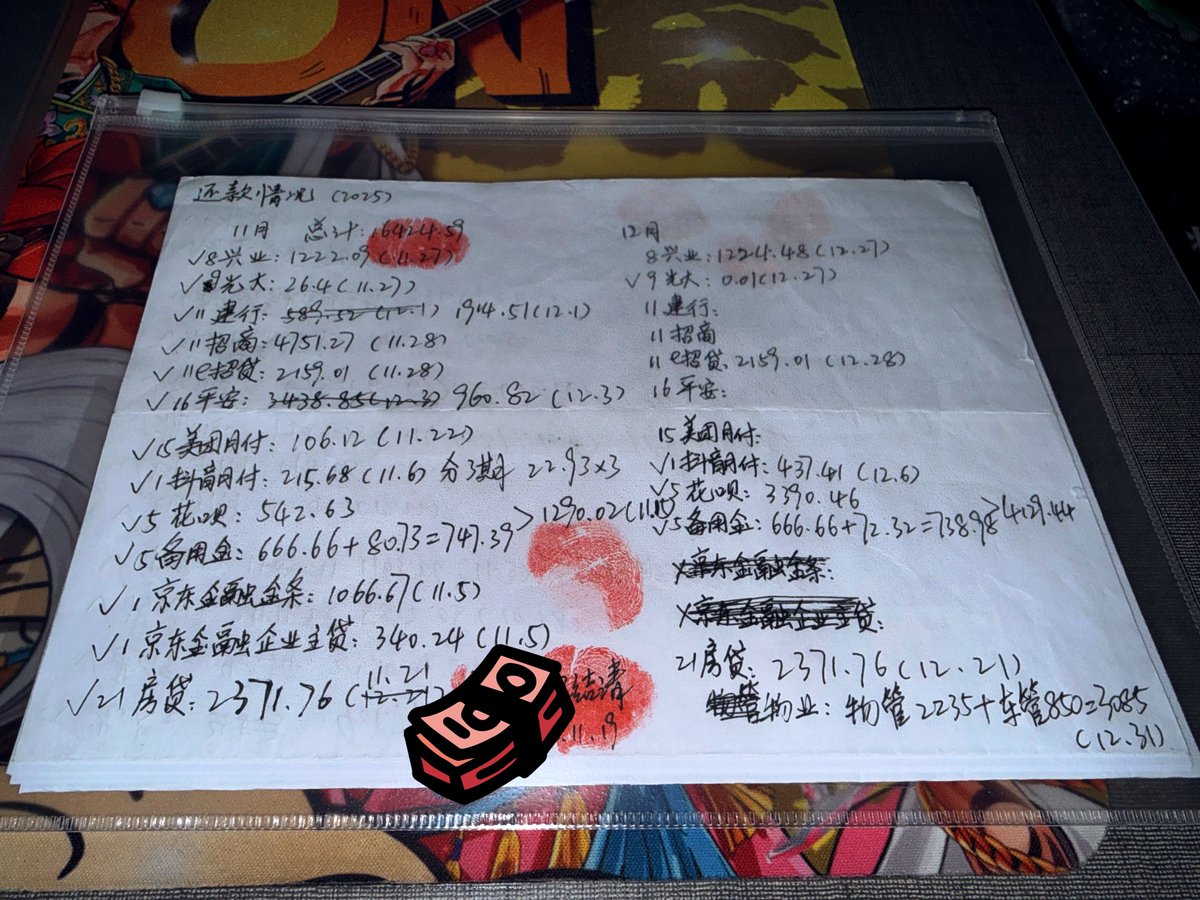 ON
还款情况 (2025)
11月 总计:16424.59
✓8兴业:1222.09(11.27)
✓9光大:26.4(11.27)
✓11建行:589.52(12.1) 1914.51(12.1)
✓11招商:4751.27(11.28)
✓11e招贷:2159.01(11.28)
✓16平安:3438.85(12.3) 960.82(12.3)
✓15美团月付:106.12(11.22)
✓1抖音月付:215.68(11.6)分3期 22.93×3
✓5花呗:542.63
>1290.02(11.1
✓5备用金:666.66+80.73=747.39
✓1京东金融金条:1066.67(11.5)
✓1京东金融企业主贷:340.24(11.5)
11.21
✓21房贷:2371.76(12.21)
结清
.11.19
12月
8兴业:1224.48(12.27)
✓9光大:0.01(12.27)
11建行:
11招商
11e招贷:2159.01(12.28)
16平安:
15美团月付:
✓1抖音月付:437.41(12.6)
✓5花呗:3390.46
>4129.44
✓5备用金:666.66+72.32=738.98
×京东金融金条:
×京东金融企业主贷:
21房贷:2371.76(12.21)
物业:物管2235+车管850=3085
(12.31)